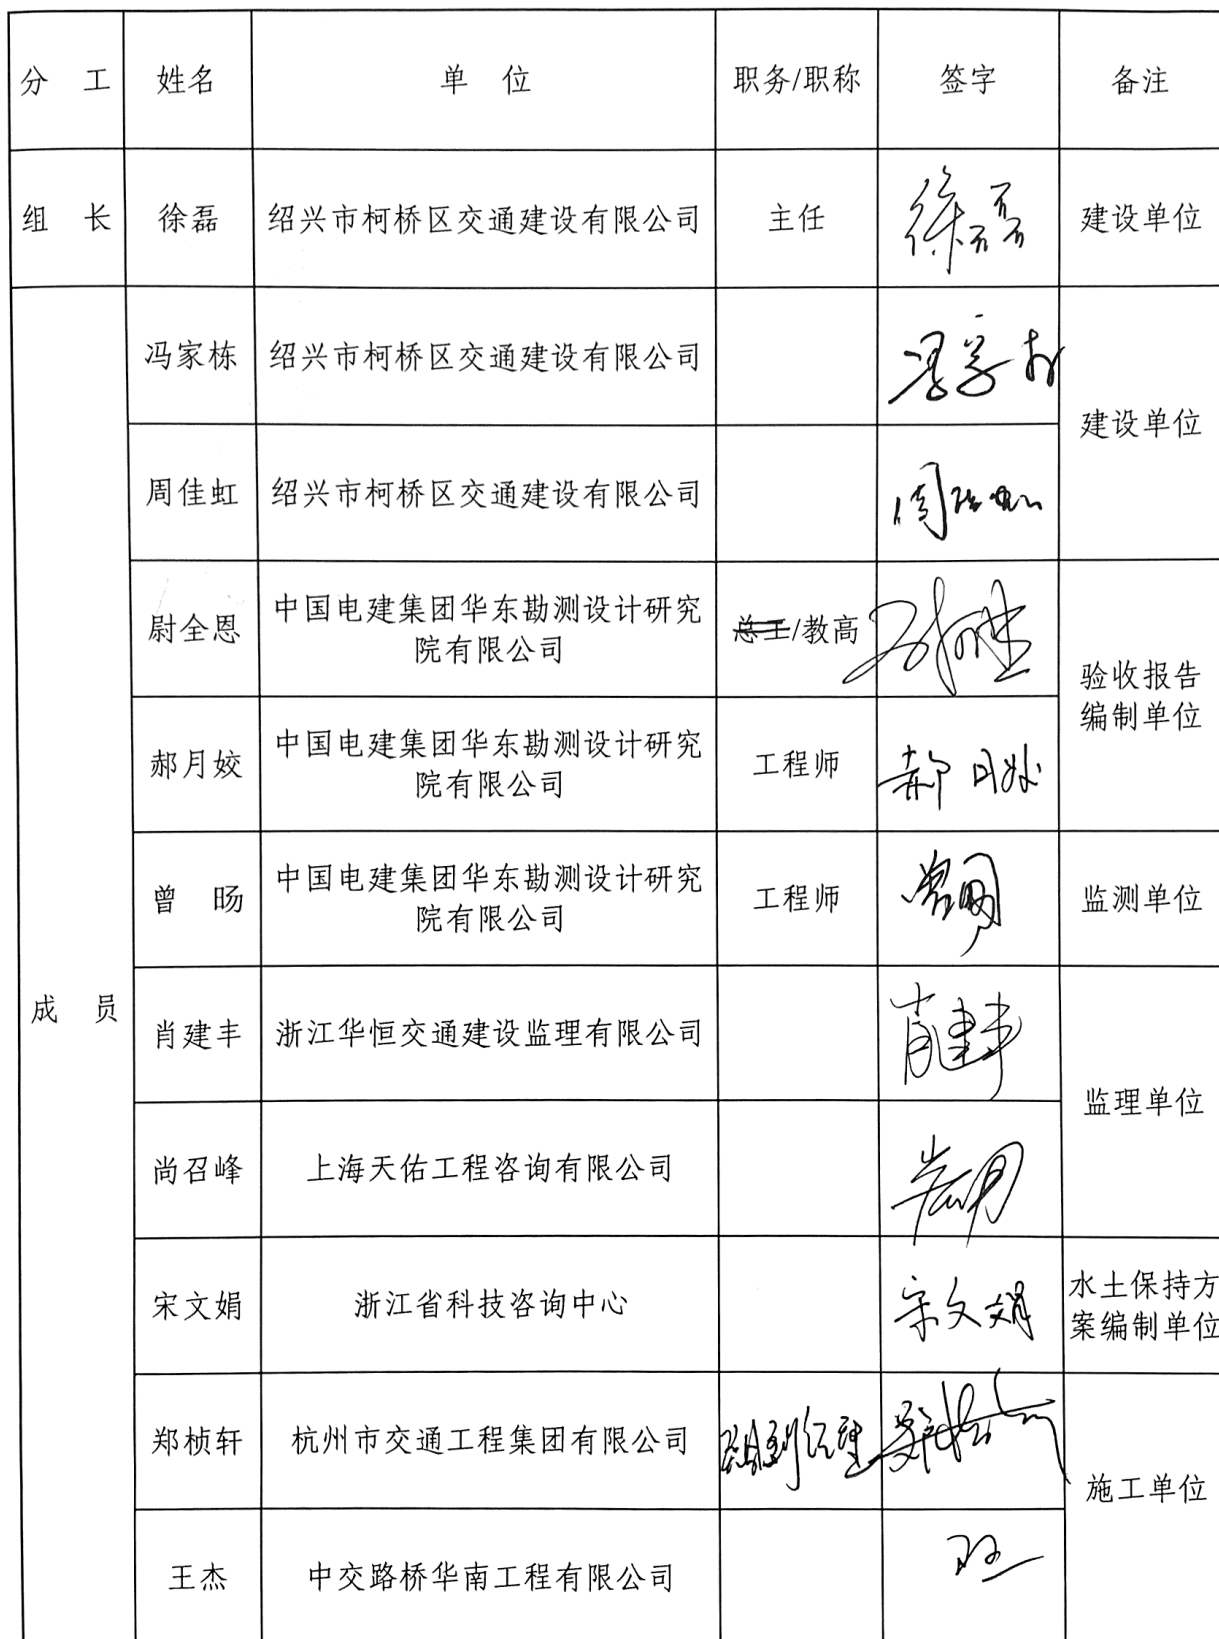 分 工 姓名 单 位 职务/职称 签字 备注
组 长 徐磊 绍兴市柯桥区交通建设有限公司 主任 徐磊 建设单位
成 员
冯家栋 绍兴市柯桥区交通建设有限公司 冯家栋
周佳虹 绍兴市柯桥区交通建设有限公司 周佳虹
建设单位
尉全恩 中国电建集团华东勘测设计研究
院有限公司
总工/教高
郝月姣 中国电建集团华东勘测设计研究
院有限公司
工程师 郝月姣
验收报告
编制单位
曾 旸 中国电建集团华东勘测设计研究
院有限公司
工程师 曾旸 监测单位
肖建丰 浙江华恒交通建设监理有限公司 肖建丰
尚召峰 上海天佑工程咨询有限公司
监理单位
宋文娟 浙江省科技咨询中心 宋文娟
水土保持方
案编制单位
郑桢轩 杭州市交通工程集团有限公司 郑桢轩
王杰 中交路桥华南工程有限公司
施工单位